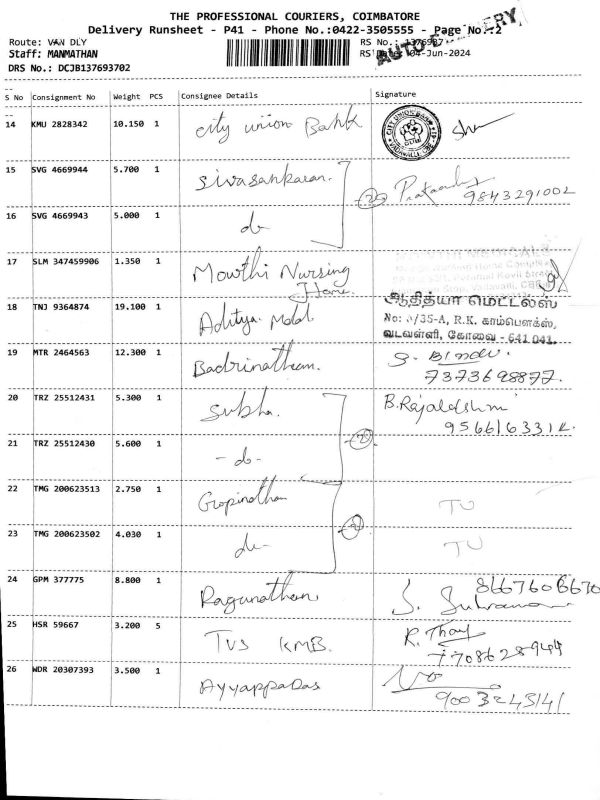 THE PROFESSIONAL COURIERS, COIMBATORE
Delivery Runsheet - P41 - Phone No.:0422-3505555 - Page No.:2
Route: VAN DLY
RS No.:
Staff: MANMATHAN
RS Date: 04-Jun-2024
DRS No.: DCJB137693702
S No Consignment No Weight PCS Consignee Details Signature
14 KMU 2828342 10.150 1 city union Bank
CITY UNION BANK
15 SVG 4669944 5.700 1 Sivasankaran.
9843291002
16 SVG 4669943 5.000 1 do
17 SLM 347459906 1.350 1 Mowthi Nursing
Home
18 TNJ 9364874 19.100 1 Aditya Metal
ஆதித்யா மெட்டல்ஸ்
No: /35-A, R.K. காம்பௌக்ஸ்,
வடவள்ளி, கோவை - 641 041.
19 MTR 2464563 12.300 1 Badrinathan.
S. Bindu.
7373698877.
20 TRZ 25512431 5.300 1 Subha.
B.Rajalakshmi
9566163312
21 TRZ 25512430 5.600 1 - do -
22 TMG 200623513 2.750 1 Gopinathan
TU
23 TMG 200623502 4.030 1 do
TU
24 GPM 377775 8.800 1 Ragunathan
8667606670
25 HSR 59667 3.200 5 TVS KMB.
7708628944
26 WDR 20307393 3.500 1 Ayyappadas
9003243141